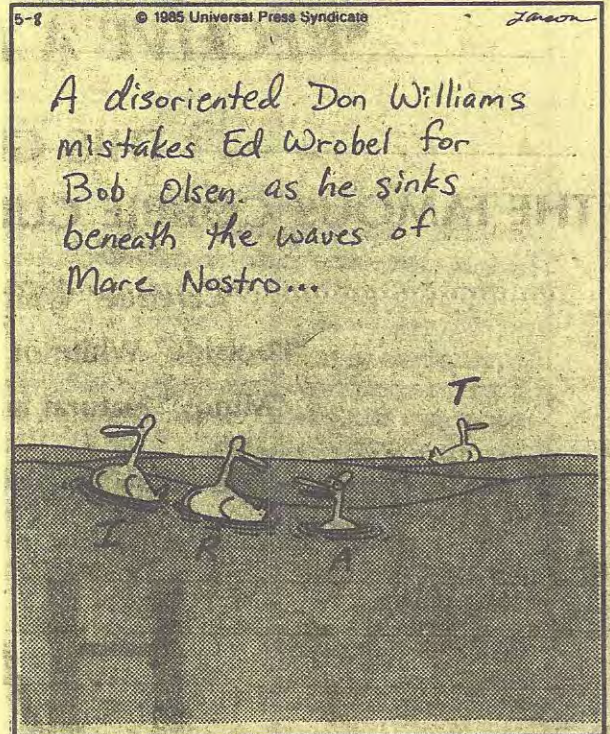 5-8 © 1985 Universal Press Syndicate Larson
A disoriented Don Williams
mistakes Ed Wrobel for
Bob Olsen. as he sinks
beneath the waves of
Mare Nostro...
T
I R A